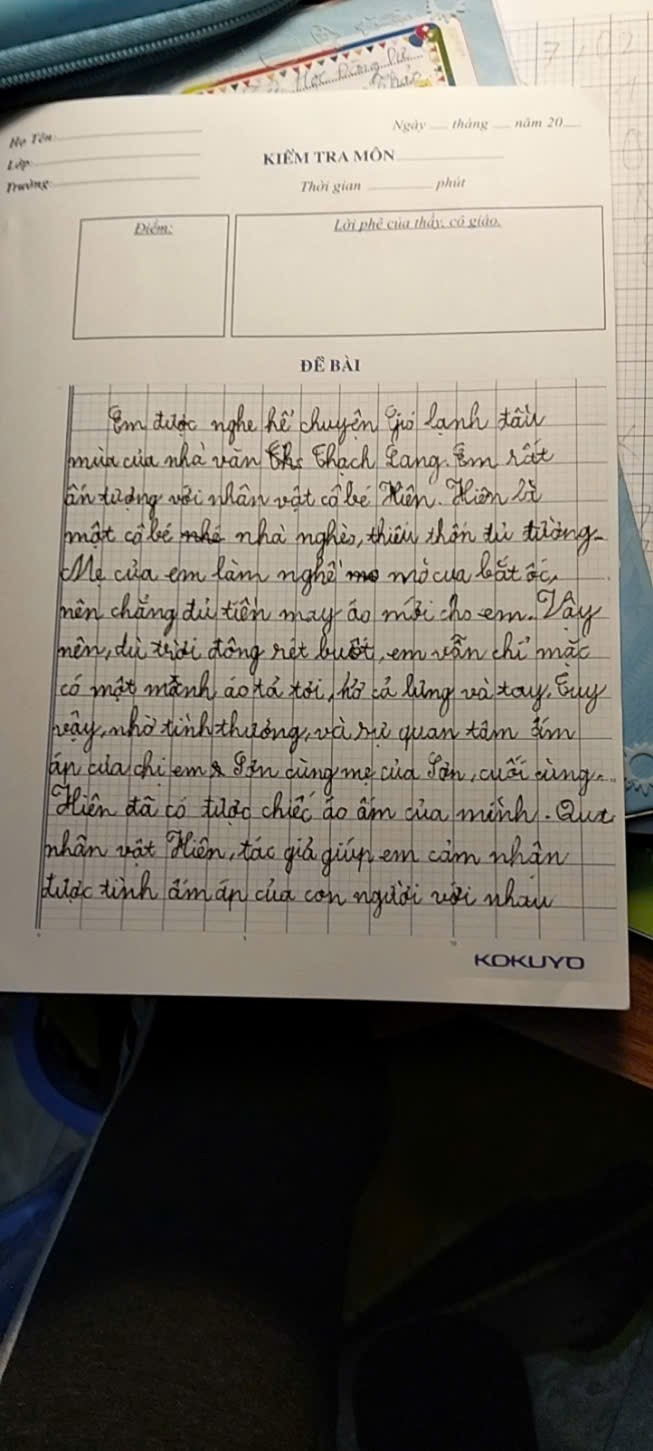 Học
7 1 0 2
Ngày ___ tháng ___ năm 20___
Họ Tên:
Lớp:
KIỂM TRA MÔN
Trường:
Thời gian ___ phút
Điểm:
Lời phê của thầy, cô giáo.
ĐỀ BÀI
Em được nghe kể chuyện Gió lạnh đầu
mùa của nhà văn Ths Thạch Lang. Em rất
ấn tượng với nhân vật cô bé Hiên. Hiên là
một cô bé nhà nghèo, thiếu thốn đủ đường.
Mẹ của em làm nghề mo mò cua bắt ốc,
nên chẳng đủ tiền may áo mới cho em. Vậy
nên, dù trời đông rét buốt, em vẫn chỉ mặc
có một mảnh áo tả tơi, hở cả lưng và tay. Tuy
vậy, nhờ tình thương, và sự quan tâm ấm
áp của chị em Sơn cùng mẹ của Sơn, cuối cùng
Hiên đã có được chiếc áo ấm của mình. Qua
nhân vật Hiên, tác giả giúp em cảm nhận
được tình ấm áp của con người với nhau
KOKUYO